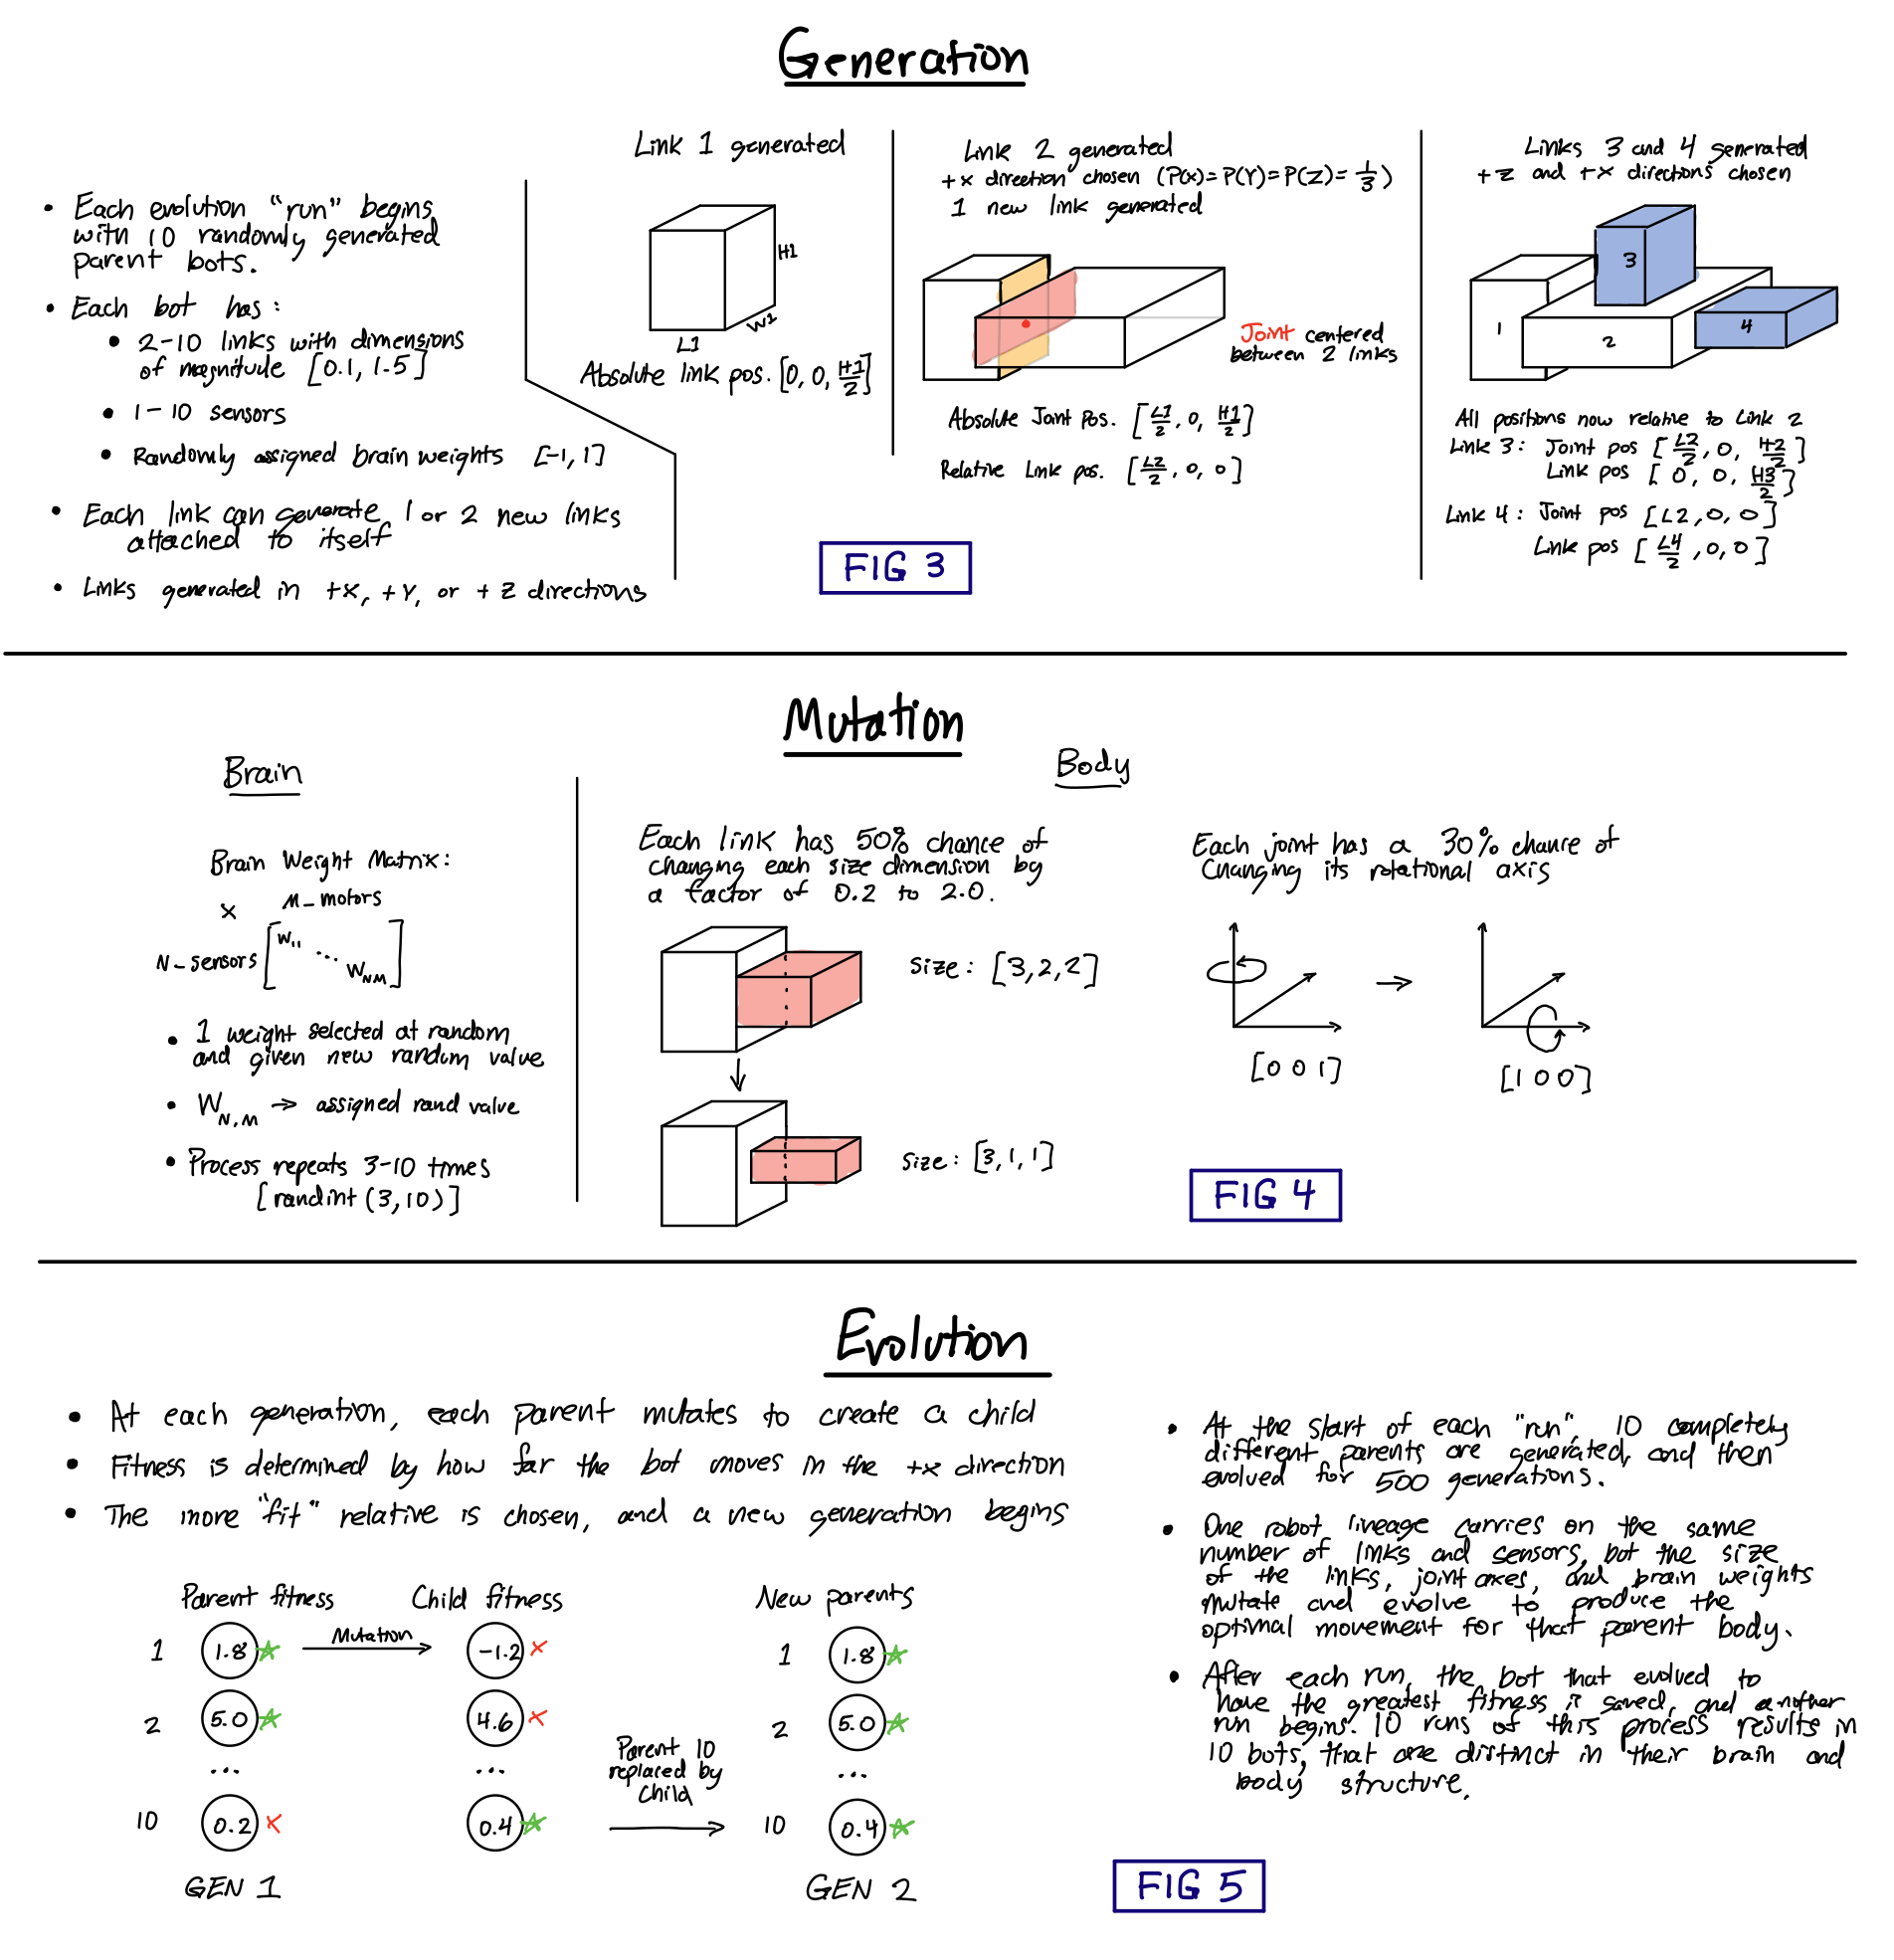 Generation
• Each evolution "run" begins
with 10 randomly generated
parent bots.
• Each bot has:
• 2-10 links with dimensions
of magnitude [0.1, 1.5]
• 1-10 sensors
• Randomly assigned brain weights [-1, 1]
• Each link can generate 1 or 2 new links
attached to itself
• Links generated in +X, +Y, or +Z directions
Link 1 generated
H1
W1
L1
Absolute link pos. [0, 0, H1/2]
Link 2 generated
+x direction chosen (P(x)=P(Y)=P(Z)=1/3)
1 new link generated
Joint centered
between 2 links
Absolute Joint Pos. [L1/2, 0, H1/2]
Relative Link pos. [L2/2, 0, 0]
Links 3 and 4 generated
+z and +x directions chosen
3
1
2
4
All positions now relative to Link 2
Link 3: Joint pos [L2/2, 0, H2/2]
Link pos [0, 0, H3/2]
Link 4: Joint pos [L2, 0, 0]
Link pos [L4/2, 0, 0]
FIG 3
Mutation
Brain
Brain Weight Matrix:
x M_motors
N_sensors [W11 ... WNM]
• 1 weight selected at random
and given new random value
• WN,M → assigned rand value
• Process repeats 3-10 times
[randint (3,10)]
Body
Each link has 50% chance of
changing each size dimension by
a factor of 0.2 to 2.0.
size: [3,2,2]
size: [3,1,1]
Each joint has a 30% chance of
changing its rotational axis
→
[0 0 1]
[1 0 0]
FIG 4
Evolution
• At each generation, each parent mutates to create a child
• Fitness is determined by how far the bot moves in the +x direction
• The more "fit" relative is chosen, and a new generation begins
Parent fitness
Child fitness
New parents
1 1.8 Mutation -1.2 1 1.8
2 5.0 4.6 2 5.0
... ... ...
Parent 10
replaced by
Child
10 0.2 0.4 10 0.4
GEN 1
GEN 2
• At the start of each "run", 10 completely
different parents are generated, and then
evolved for 500 generations.
• One robot lineage carries on the same
number of links and sensors, but the size
of the links, joint axes, and brain weights
mutate and evolve to produce the
optimal movement for that parent body.
• After each run, the bot that evolved to
have the greatest fitness is saved, and another
run begins. 10 runs of this process results in
10 bots, that are distinct in their brain and
body structure.
FIG 5